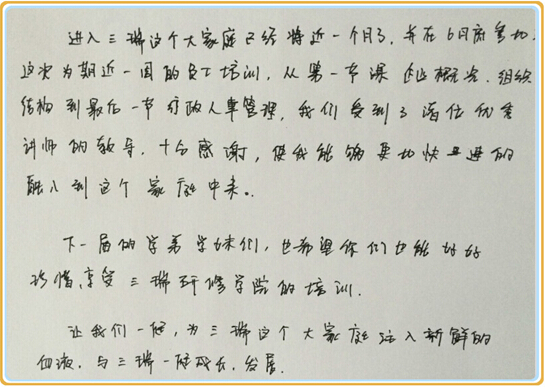 进入三瑞这个大家庭已经将近一个月了，并在6月底参加
这次为期近一周的员工培训，从第一节课 企业概况、组织
结构到最后一节 行政人事管理，我们受到了诸位优秀
讲师的教导，十分感谢，使我能够更加快速的
融入到这个家庭中来。
下一届的学弟学妹们，也希望你们也能好好
珍惜，享受三瑞研修学院的培训。
让我们一起，为三瑞这个大家庭注入新鲜的
血液，与三瑞一起成长、发展。